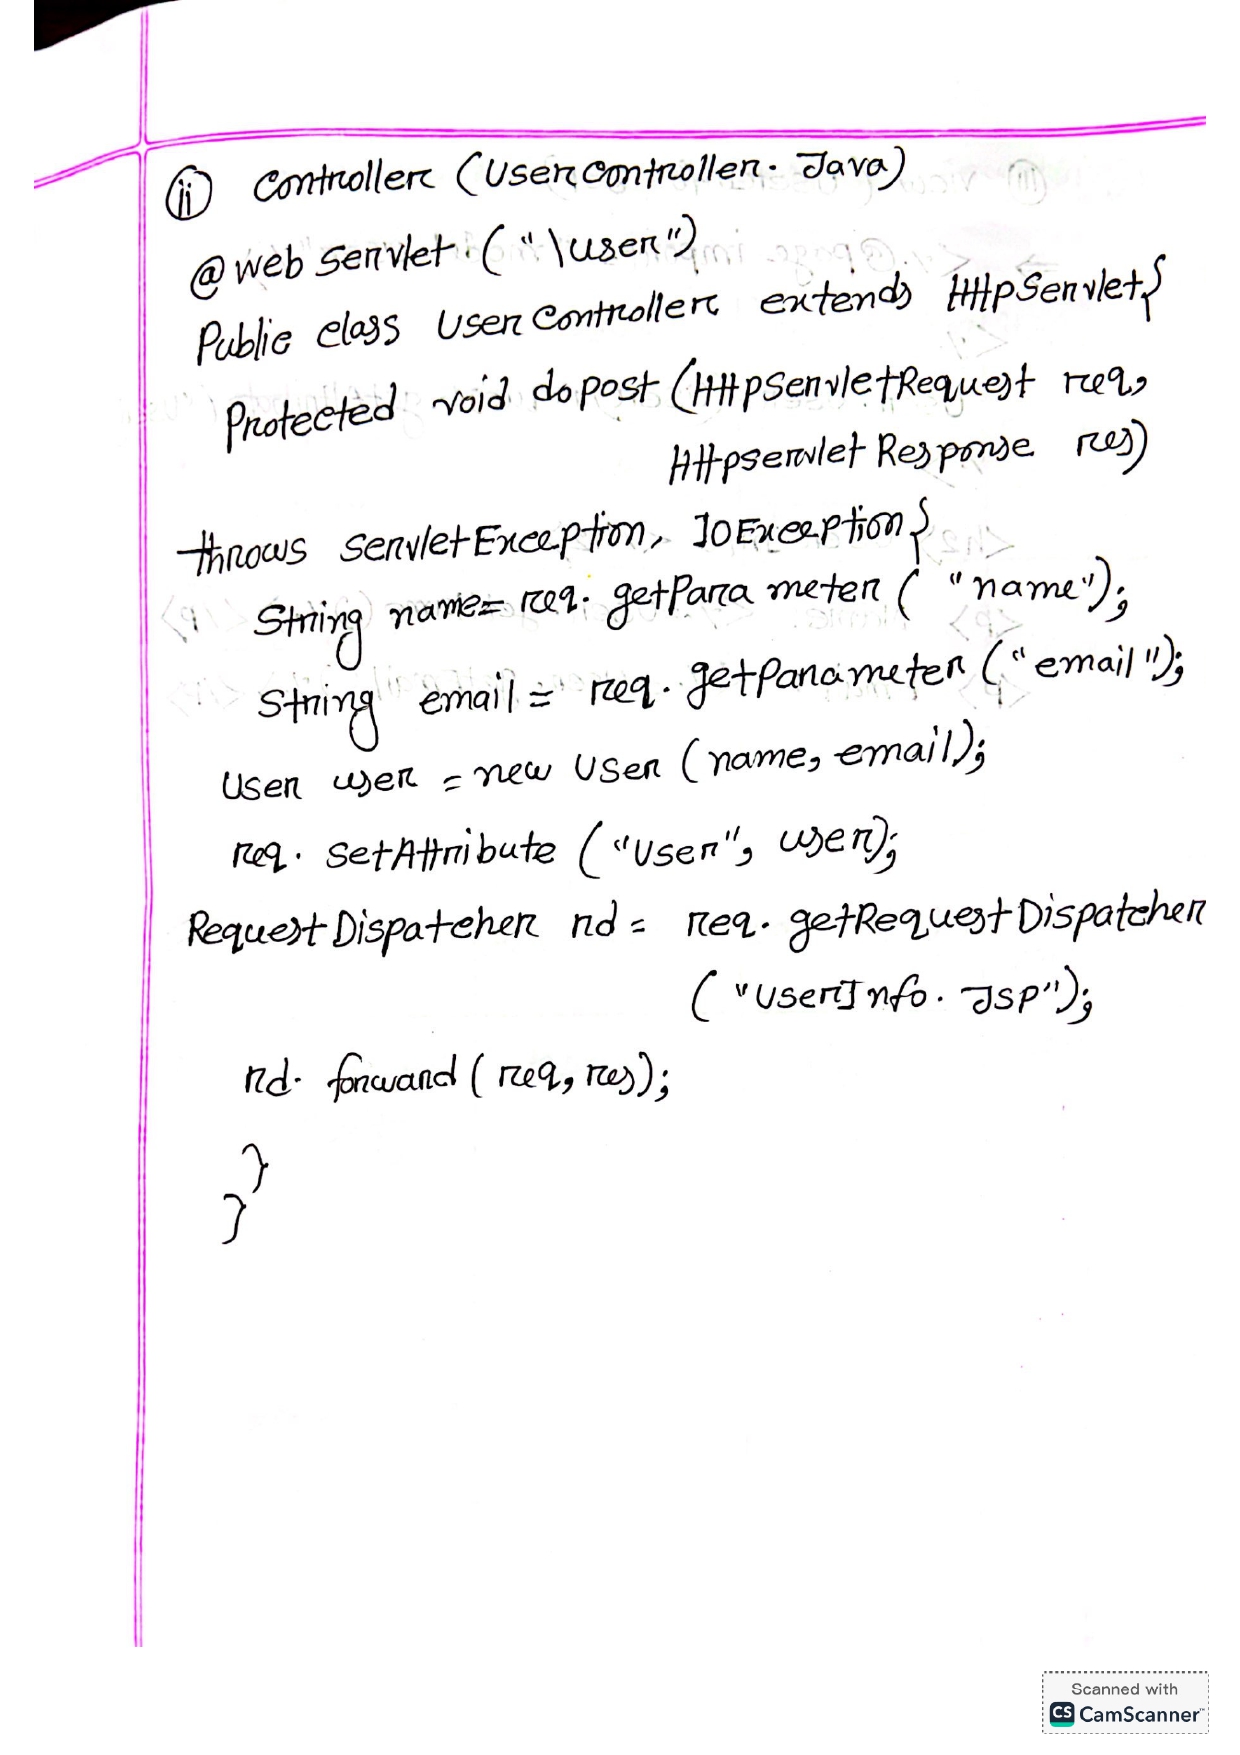 (ii) Controller (UserController. Java)
@ web Servlet. ("\user")
Public class UserController extends HttpServlet{
Protected void dopost (HttpServletRequest req,
HttpservletResponse res)
throws servletException, IOException{
String name= req. getParameter ( "name");
String email = req. getParameter ("email");
User user = new User (name, email);
req. setAttribute ("User", user);
RequestDispatcher rd = req. getRequestDispatcher
( "UserInfo. Jsp");
rd. forward ( req, res);
}
}
Scanned with
CS CamScanner